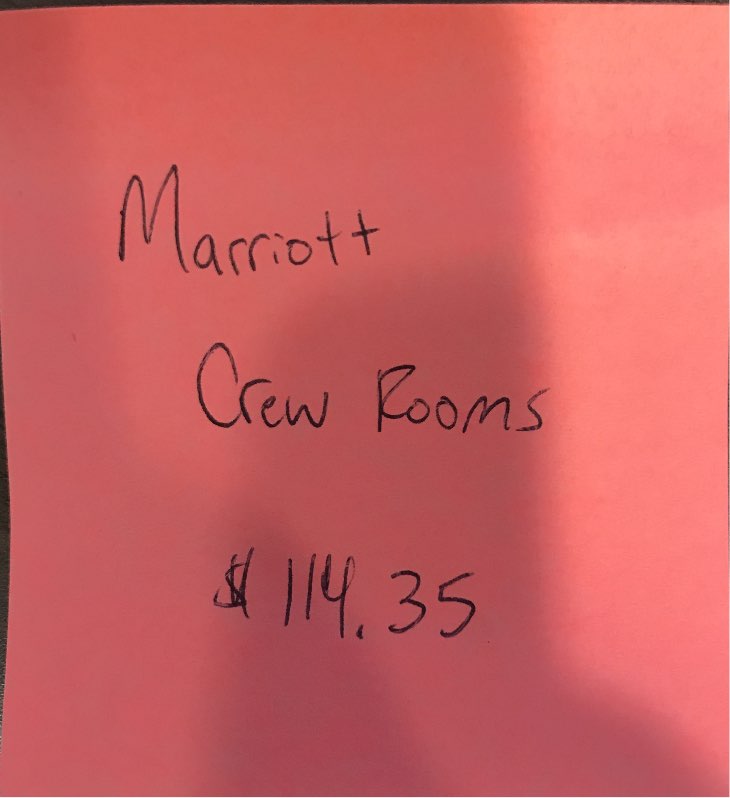 Marriott
Crew Rooms
$114.35